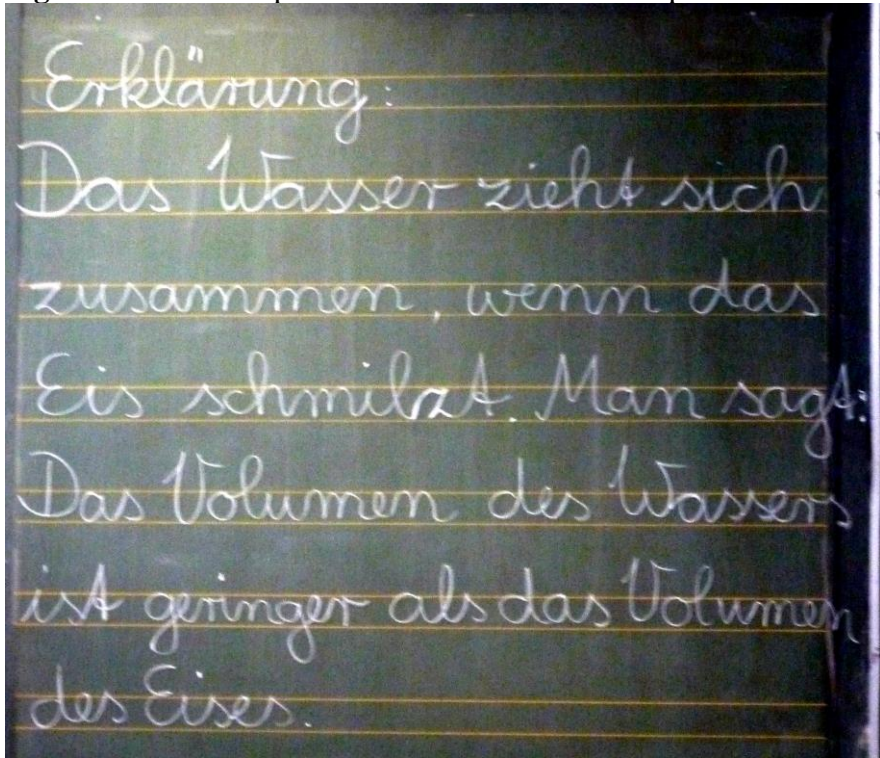 Erklärung:
Das Wasser zieht sich
zusammen, wenn das
Eis schmilzt. Man sagt:
Das Volumen des Wassers
ist geringer als das Volumen
des Eises.